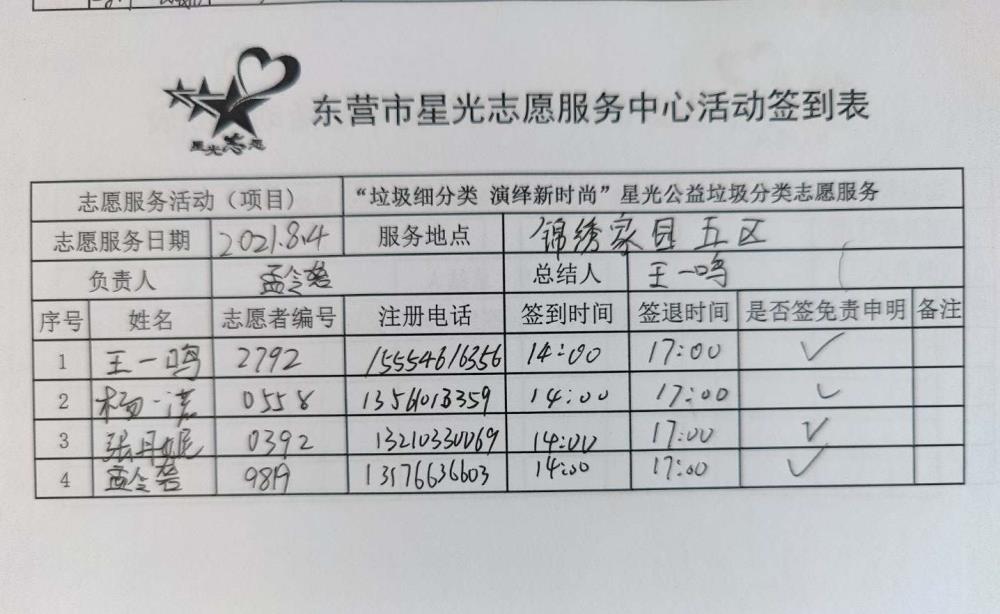 星光志愿
东营市星光志愿服务中心活动签到表
志愿服务活动（项目） “垃圾细分类 演绎新时尚”星光公益垃圾分类志愿服务
志愿服务日期 2021.8.4 服务地点 锦绣家园五区
负责人 孟令 总结人 王一鸣
序号 姓名 志愿者编号 注册电话 签到时间 签退时间 是否签免责申明 备注
1 王一鸣 2792 15554616356 14:00 17:00 ✓
2 杨一诺 0558 13561013359 14:00 17:00 ✓
3 张丹妮 0392 13210330069 14:00 17:00 ✓
4 孟令 9819 13176636603 14:00 17:00 ✓